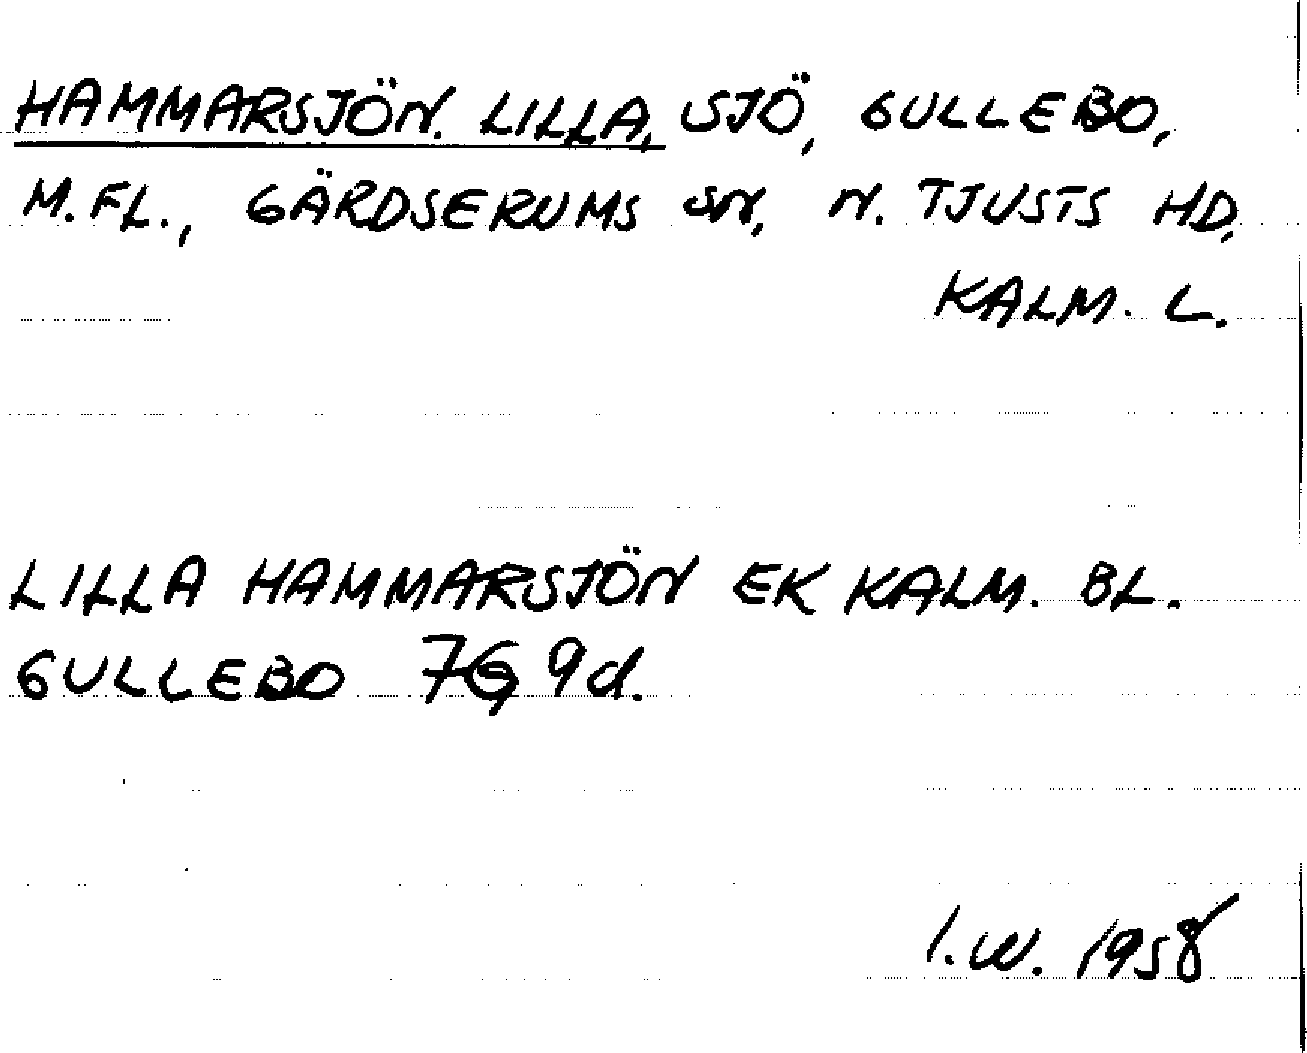 HAMMARSJÖN. LILLA, SJÖ, GULLEBO,
M.FL., GÄRDSERUMS SN, N. TJUSTS HD,
KALM. L.
LILLA HAMMARSJÖN EK KALM. BL.
GULLEBO 7G 9d.
I.W. 1958